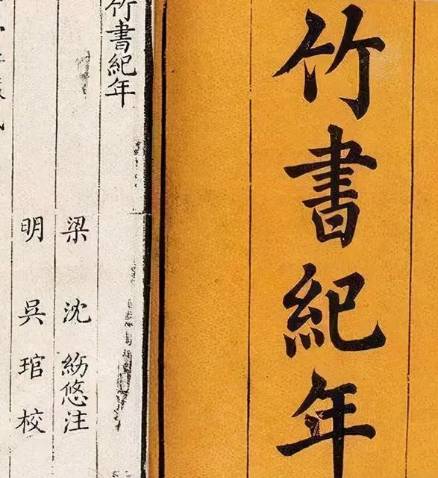 竹書紀年
竹書紀年
梁 沈 紛悠注
明 吳 琯 校